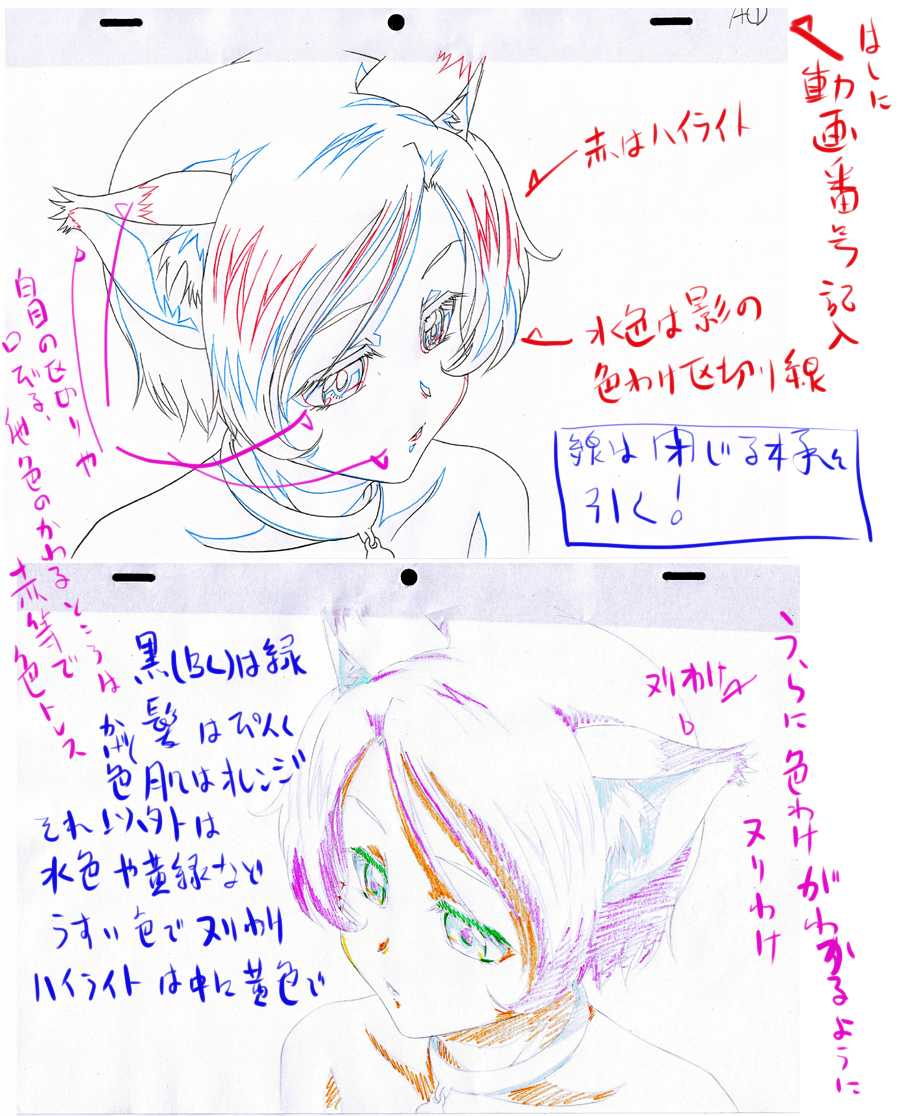 A①
はしに
動画番号記入
赤はハイライト
水色は影の
色わけ区切り線
線は閉じる様に
引く!
白目の区切りや
口びる、他色のかわるところは
赤等で色トレス
うらに色わけがわかるように
ヌリわけ
ヌリわけ
黒(BL)は緑
髪はぴんく
色肌はオレンジ
それ以外は
水色や黄緑など
うすい色でヌリわけ
ハイライトは中に黄色で